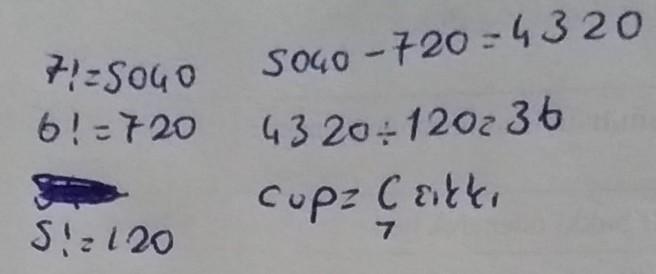 7!=5040
6!=720
5!=120
5040-720=4320
4320÷120=36
cvp= C şıkkı
7